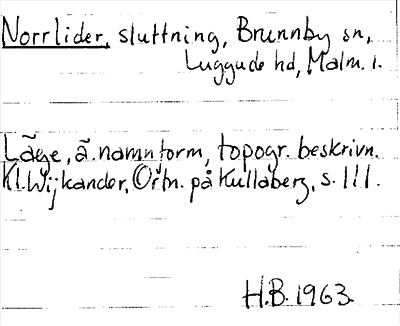 Norrlider, sluttning, Brunnby sn,
Luggude hd, Malm. l.
Läge, ä. namnform, topogr. beskrivn.
Kl. Wijkander, Ortn. på Kullaberg, s. 111.
H.B. 1963.